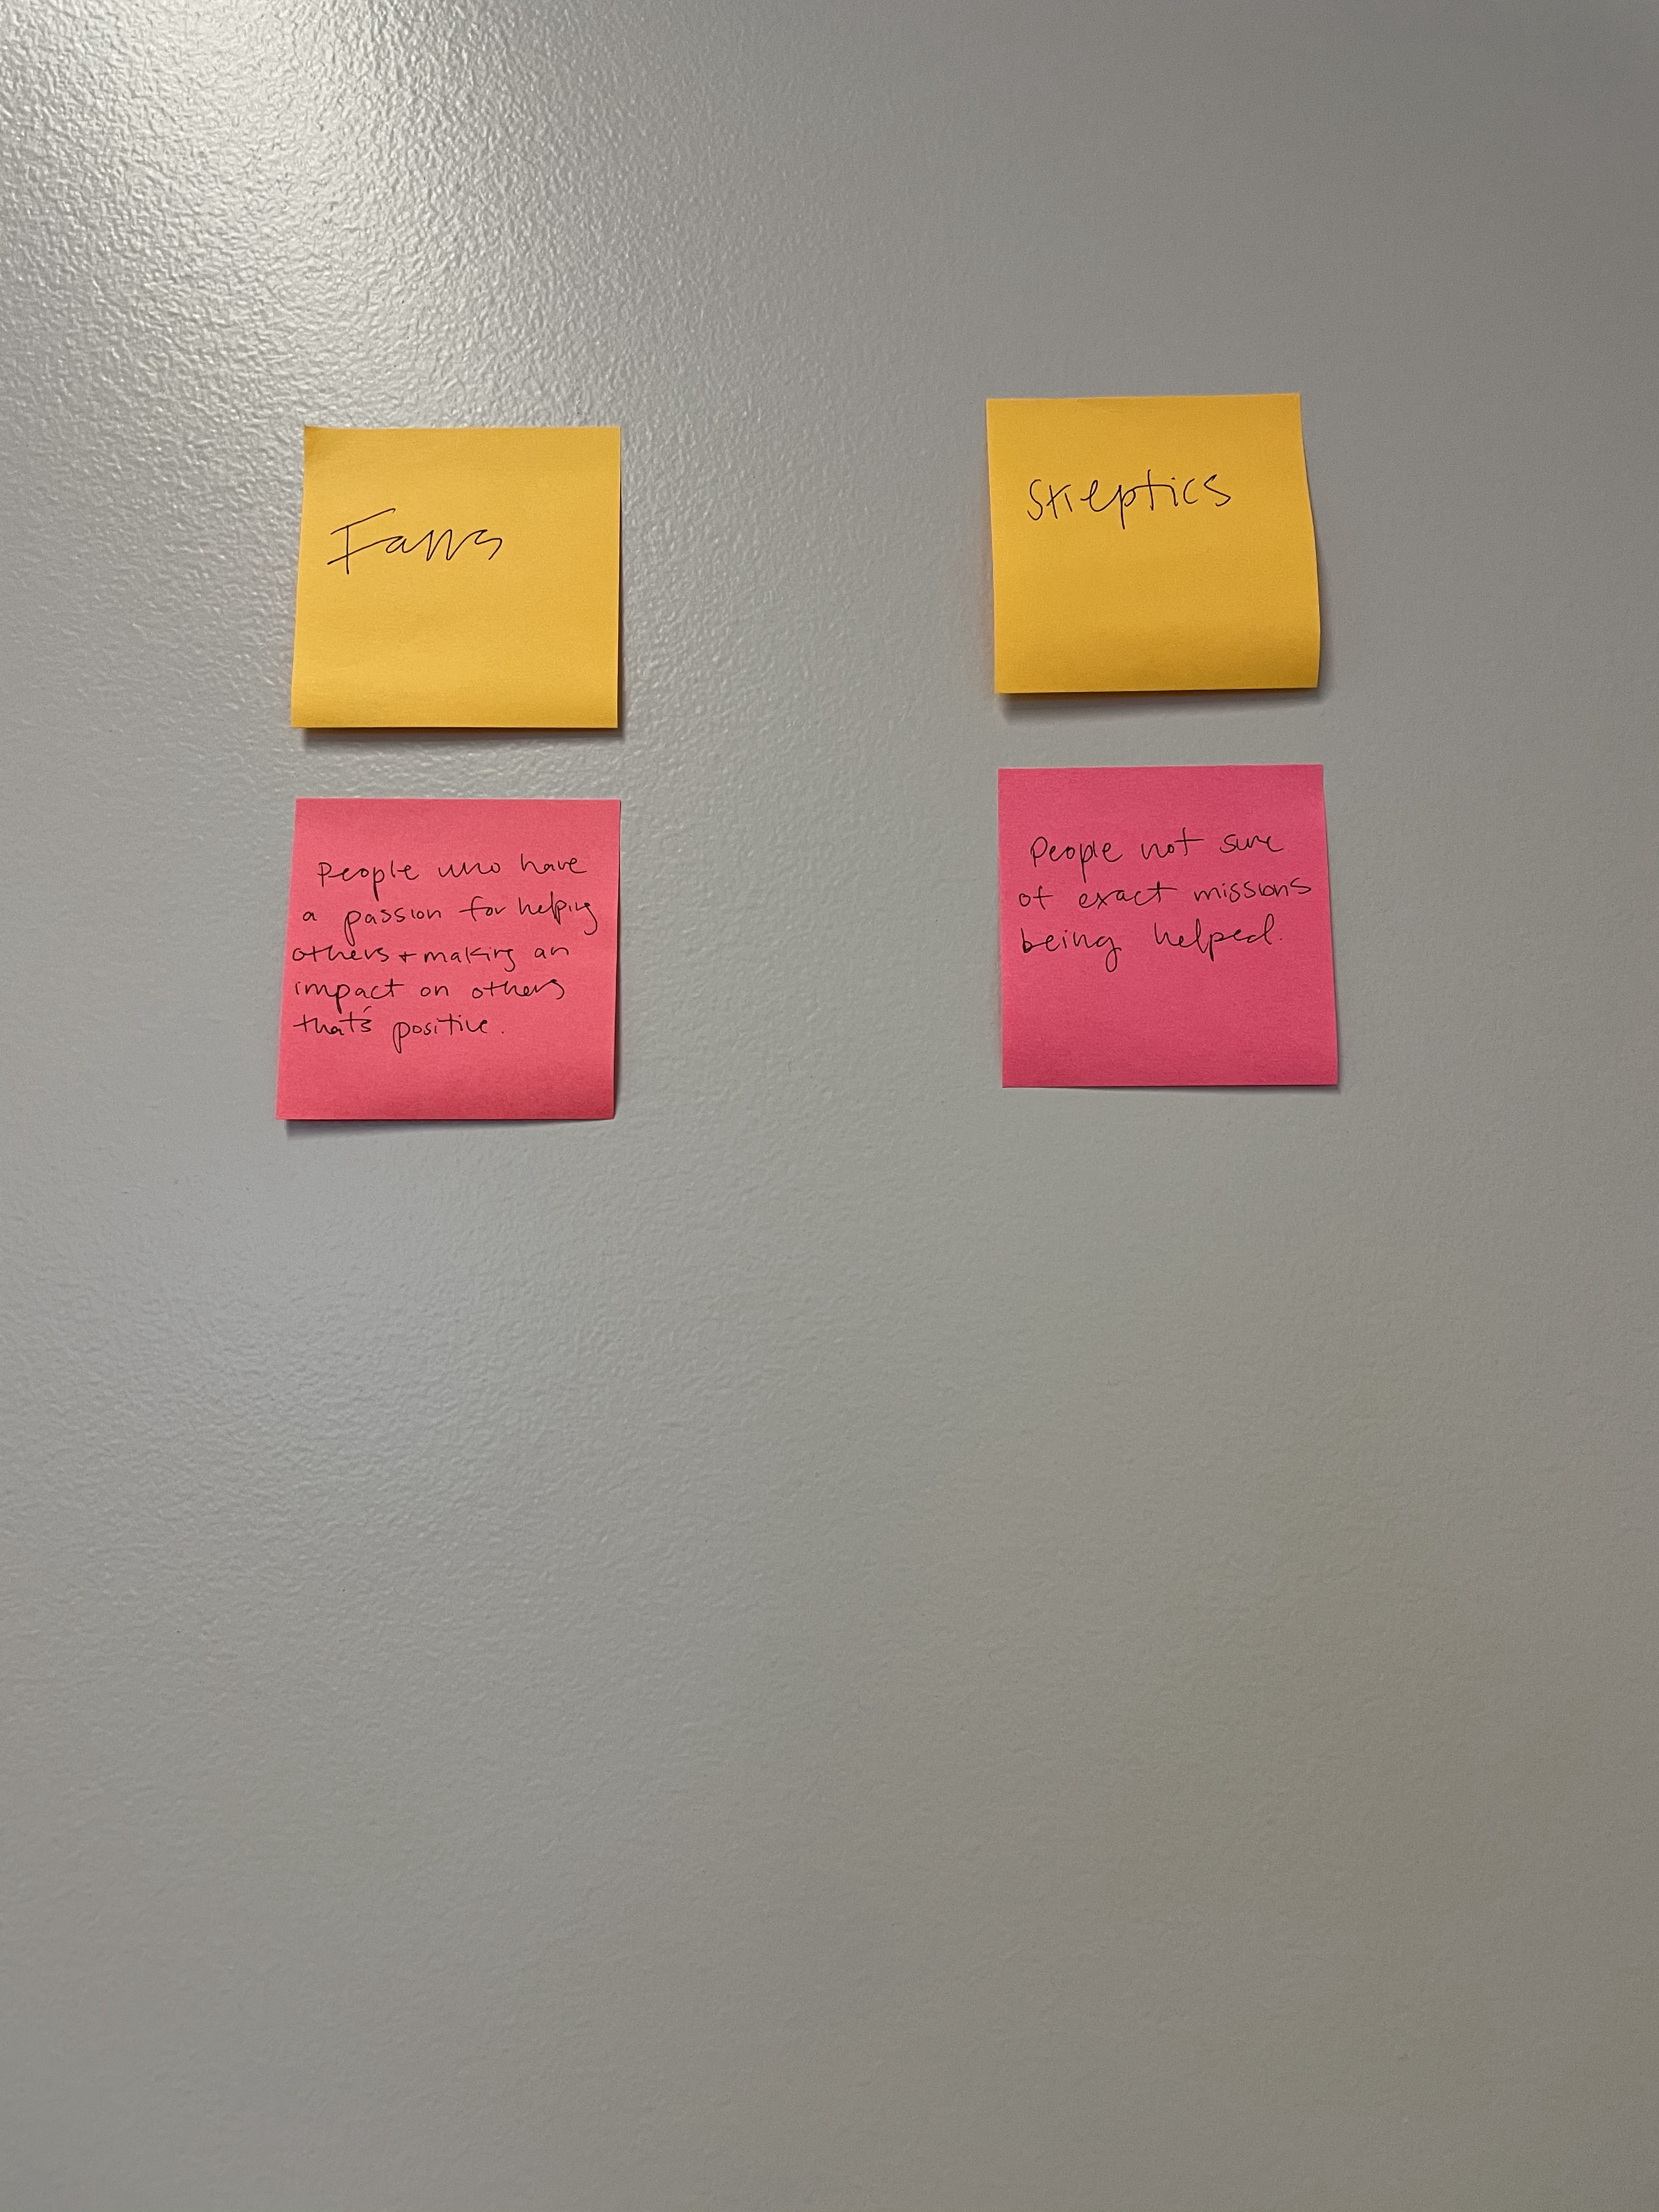 Fans
People who have
a passion for helping
others + making an
impact on others
that's positive.
Skeptics
People not sure
of exact missions
being helped.